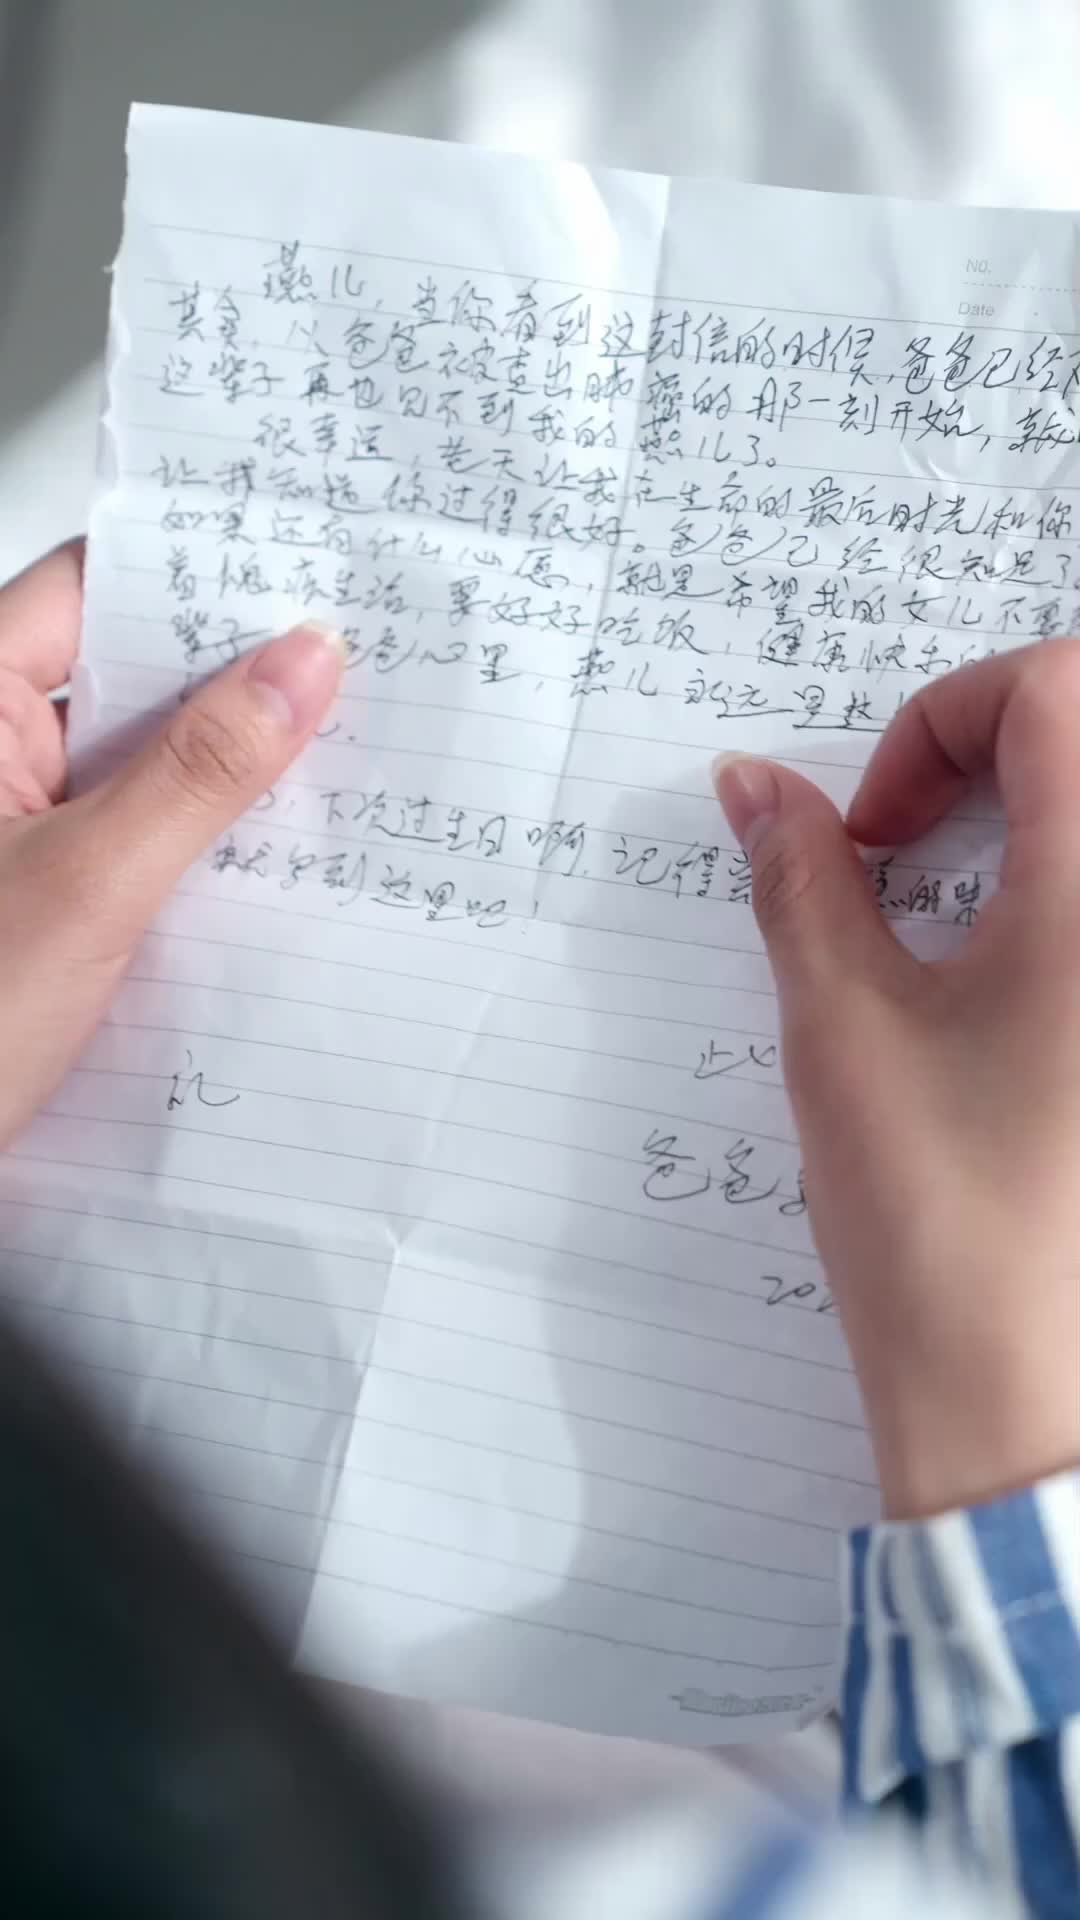 No.
Date
燕儿，当你看到这封信的时候，爸爸已经不
其实，从爸爸被查出肺癌的那一刻开始，就
这辈子再也见不到我的燕儿了。
很幸运，老天让我在生命的最后时光和你
让我知道你过得很好。爸爸已经很知足了。
如果还有什么心愿，就是希望我的女儿不要
着愧疚生活，要好好吃饭，健康快乐的
辈子 爸爸心里，燕儿永远是
下次过生日啊，记得 的味
就写到这里吧！
此
礼
爸爸
202